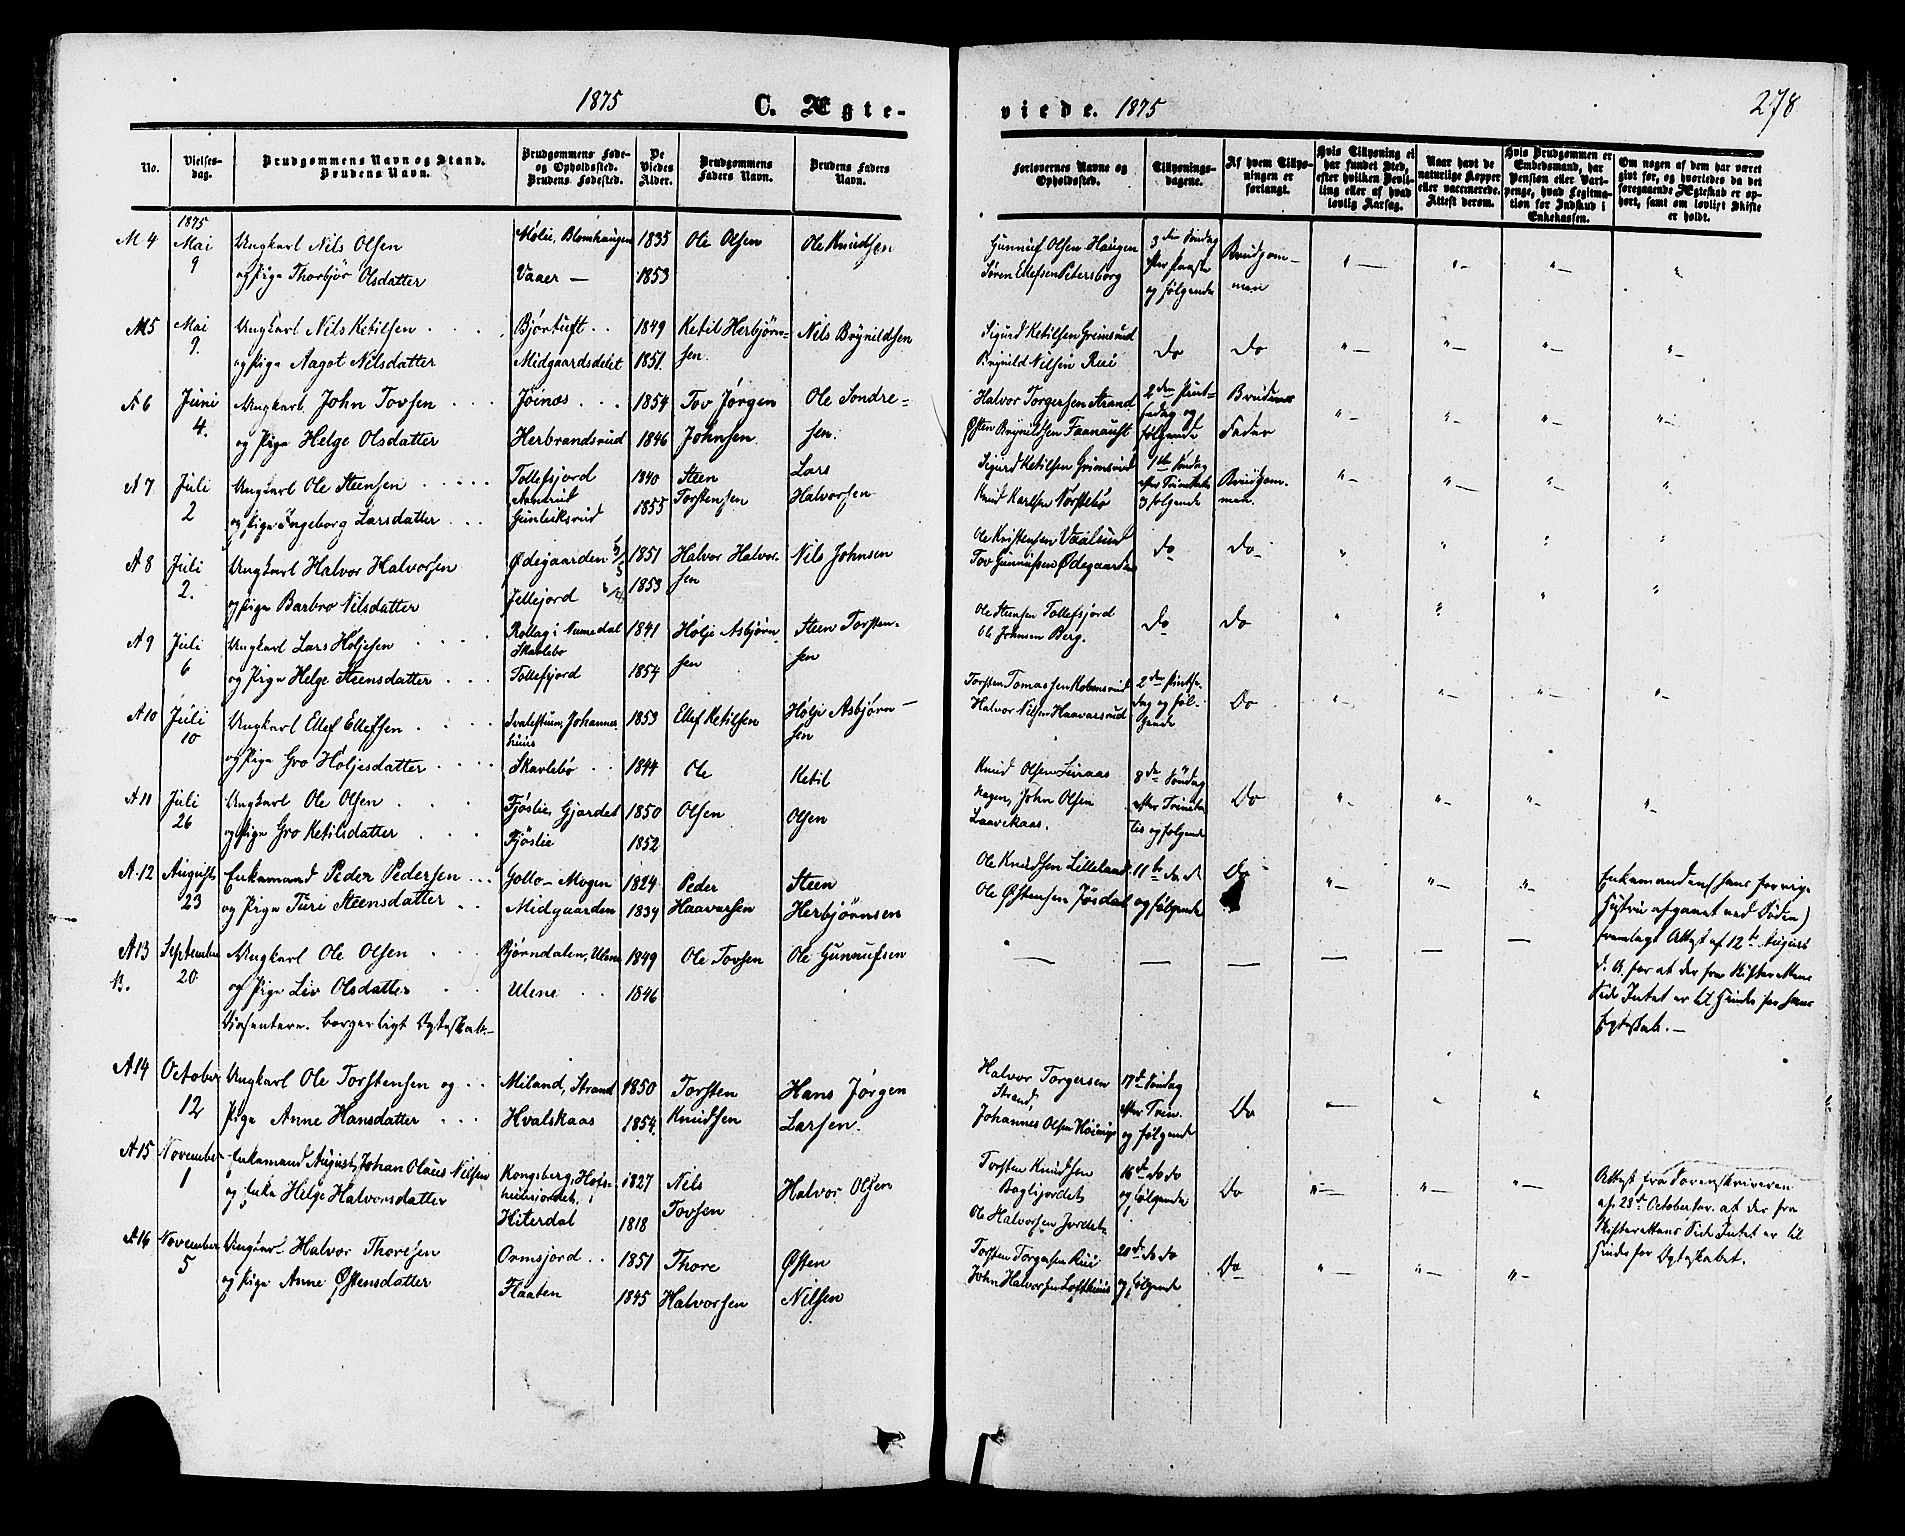 1875
C. Ægte-
No.
Vielses-
dag.
Brudgommens Navn og Stand.
Brudens Navn.
Brudgommens Føde-
og Opholdssted.
Brudens Fødested.
De
Viedes
Alder.
Brudgommens
Faders Navn.
Brudens Faders
Navn.
1875
M 4 Mai Ungkarl Nils Olsen Mølie, Blomhaugen 1835 Ole Olsen Ole Knudsen
9 og Pige Thorbjør Olsdatter Vaaer — 1853
M5 Mai Ungkarl Nils Ketilsen Bjørtuft 1849 Ketil Herbjørn- Nils Brynildsen
9. og Pige Aagot Nilsdatter Midgaardsdelet 1851. sen.
A 6 Juni Ungkarl John Tovsen Joenæs 1854 Tov Jørgen Ole Sondre-
4. og Pige Helge Olsdatter Herbrandsrud 1846 Johnsen. sen.
A 7 Juli Ungkarl Ole Steensen Tollefjord 1840 Steen Lars
2 og Pige Ingeborg Larsdatter Gunleiksrud 1855 Torstensen Halvorsen
A 8 Juli Ungkarl Halvor Halvorsen Ødegaarden 1851 Halvor Halvor- Nils Johnsen
2. og Pige Barbro Nilsdatter Jellejord 1853 sen
A 9 Juli Ungkarl Lars Holjesen Rollag i Numedal 1841 Holje Asbjørn- Steen Torsten-
Skarlebø
6 og Pige Helge Steensdatter Tollefjord 1854 sen sen
A10 Juli Ungkarl Ellef Ellefsen Johannes- 1853 Ellef Ketilsen Holje Asbjørn-
10 huus sen
og Pige Gro Holjesdatter Skarlebø 1844
A 11 Juli Ungkarl Ole Olsen Fjøslie, Gjardet 1850 Ole Ketil
26 og Pige Gro Ketilsdatter Fjøslie 1852 Olsen Olsen
A.12 August Enkemand Peder Pedersen Gollo-Mogen 1824 Peder Steen
23 og Pige Turi Steensdatter Midgaarden 1834 Haavarsen Herbjørnsen
A13 September Ungkarl Ole Olsen Bjørndalen, Ulene 1849 Ole Tovsen Ole Gunnufsen
B. 20 og Pige Liv Olsdatter Ulene 1846
Dissentere. borgerligt Ægteskab.
A14 October Ungkarl Ole Torstensen og Miland, Strand 1850 Torsten Hans Jørgen
12 Pige Anne Hansdatter Hvalskaas 1854. Knudsen Larsen.
A15 November Enkemand August Johan Olaus Nilsen Kongsberg, 1827 Nils Halvor Olsen
1 og Enke Helge Halvorsdatter Hiterdal 1818 Tovsen
A16 November Ungkarl Halvor Thoresen Ormsjord 1851 Thore Østen
5 og Pige Anne Østensdatter Flaaten 1845 Halvorsen Nilsen
viede. 1875
278
Forlovernes Navne og
Opholdssted.
Tillysnings-
dagene.
Af hvem Tillys-
ningen er
forlangt.
Hvis Tillysning ei
har fundet Sted,
efter hvilken Bevil-
ling eller af hvad
lovlig Aarsag.
Naar havt de
naturlige Kopper
eller vaccinerede.
Attest derom.
Hvis Brudgommen er
Embedsmand, har
Pension eller Vart-
penge, hvad Legitima-
tion for Indskud i
Enkekassen.
Om nogen af dem har været
gift før, og hvorledes da det
foregaaende Ægteskab er op-
hørt, samt om lovligt Skifte
er holdt.
Gunnuf Olsen Haugen 3die Søndag Brudgom-
Søren Ellefsen Petersborg efter Paaske men
og følgende
Sigurd Ketilsen Grimsrud
Brynild Nilsen Rui Do Do
Halvor Torgersen Strand 2den Pint- Brudens
Østen Brynildsen Faanaust sedag og følgende Fader
Sigurd Ketilsen Grimsrud 1ste Søndag Brudgom-
Knud Karlsen efter Trinitatis men.
og følgende
Ole Kristensen Vaalsund Do Do
Tov Gunnufsen Ødegaarden
Ole Steensen Tollefsjord Do Do
Ole Johnsen Berg.
Torsten Tomassen 2den Pintse- Do
Halvor Nilsen Haavarsrud dag og føl-
gende
Knud Olsen 8de Søndag
Hagen, John Olsen efter Trinita- Do
Laavekaas. tis og følgende
Ole Knudsen Lilleland 11te do do Do
Ole Østensen Jøsdal og følgende
Enkemanden (hans forrige
Hustru afgaaet ved Døden)
fremlagt Attest af 12te August
d. A. for at der fra Skifterettens
Side Intet er til Hinder for hans
Egteskab.—
Halvor Torgersen 17de Søndag
Strand, efter Trin. Do
Johannes Olsen og følgende
Torsten Knudsen 16de do do
Baglijordet og følgende Do
Ole Halvorsen Jordet
Attest fra Sorenskriveren
af 23de October for at der fra
Skifterettens Side Intet er til
Hinder for Ægteskabet.
Torsten Torgersen Rui 20de do do Do
John Halvorsen Lofthuus og følgende